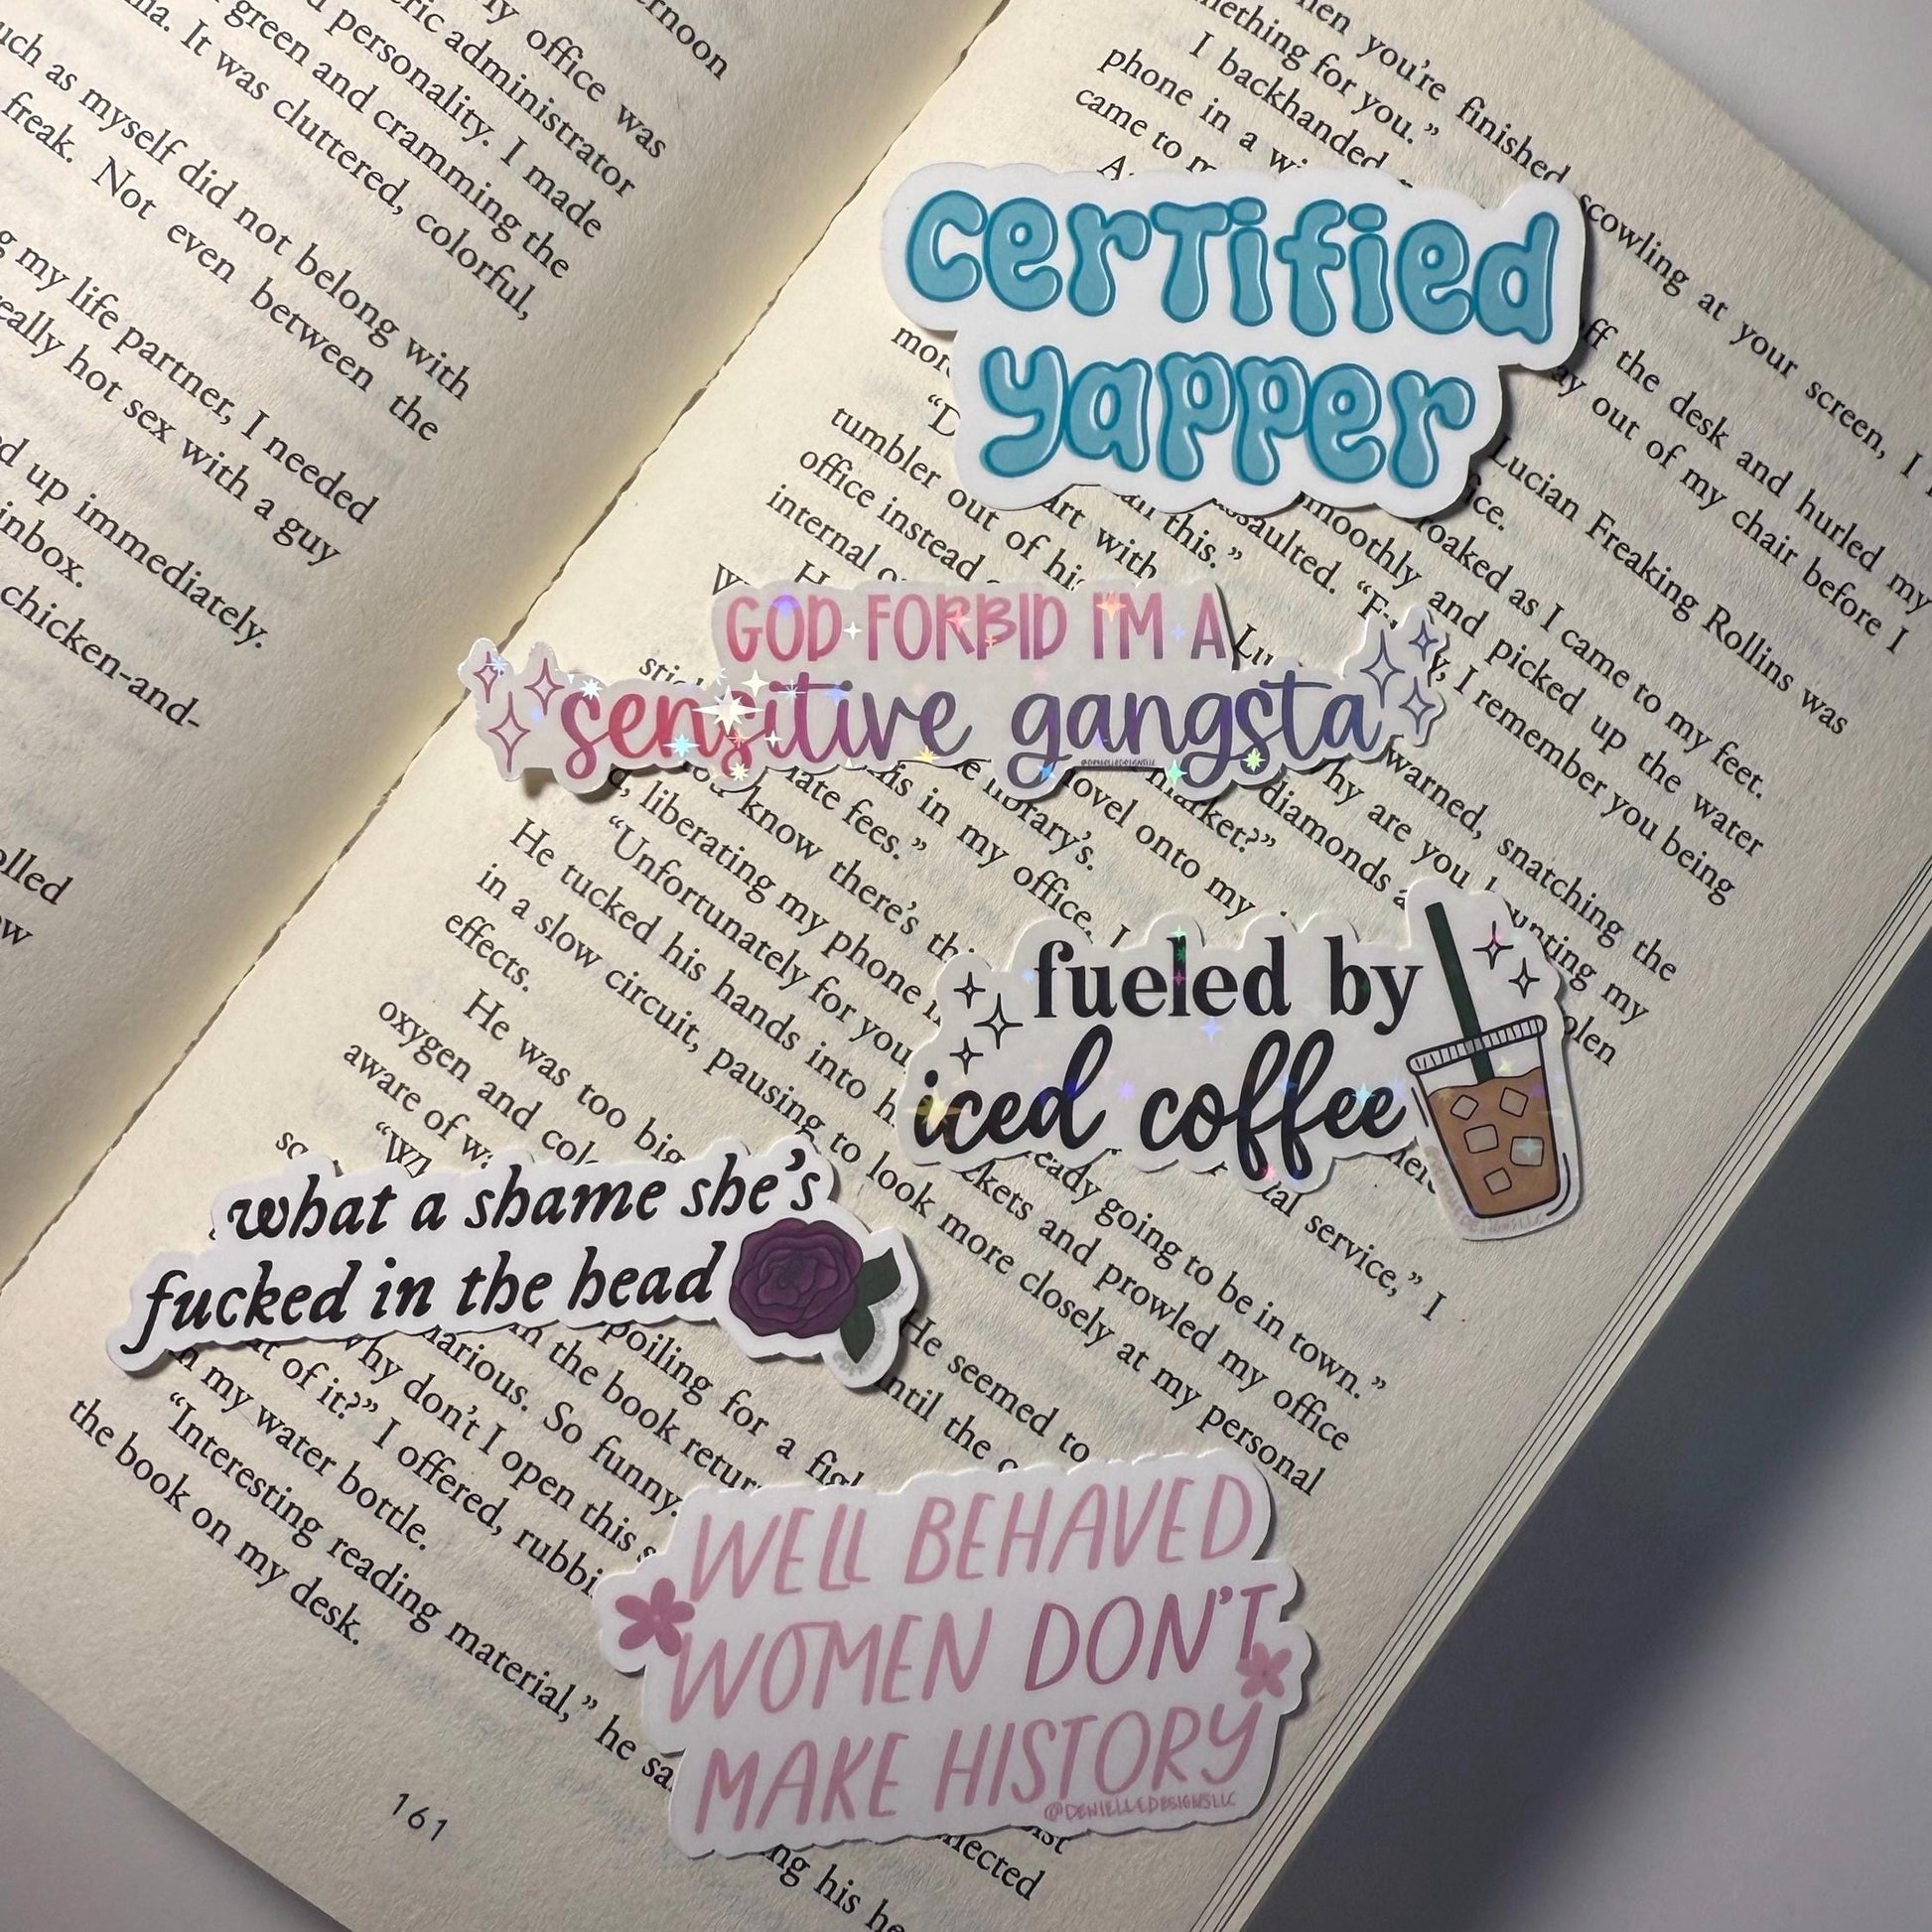 ernoon
ry office was
eric administrator
d personality. I made
green and cramming the
na. It was cluttered, colorful,
uch as myself did not belong with
freak. Not even between the
g my life partner, I needed
really hot sex with a guy
d up immediately.
inbox.
chicken-and-
olled
ow
en you're finished scowling at your screen, I
mething for you."
I backhanded
off the desk and hurled my
phone in a
ay out of my chair before I
came to
Lucian Freaking Rollins was
oaked as I came to my feet.
moothly and picked up the water
tumbler out of
assaulted.
, I remember you being
office instead
art with
all this."
internal
warned, snatching the
hy are you hunting my
diamonds
market?"
novel onto my
library's.
his in my office. I
late fees."
you know there's
, liberating my phone
"Unfortunately for you
eady going to be in town."
service," I
He tucked his hands into
ckets and prowled my office
in a slow circuit, pausing to look more closely at my personal
effects.
He was too big
He seemed to
oxygen and
until the
aware of
poiling for a
in the book return
arious. So funny.
hy don't I open this
t of it?" I offered,
n my water bottle.
"Interesting reading material," he
the book on my desk.
nected
ng his
161
certified
yapper
GOD FORBID I'M A
sensitive gangsta
@DENIELLEDESIGNSLLC
fueled by
iced coffee
what a shame she's
fucked in the head
WELL BEHAVED
WOMEN DON'T
MAKE HISTORY
@DENIELLEDESIGNSLLC